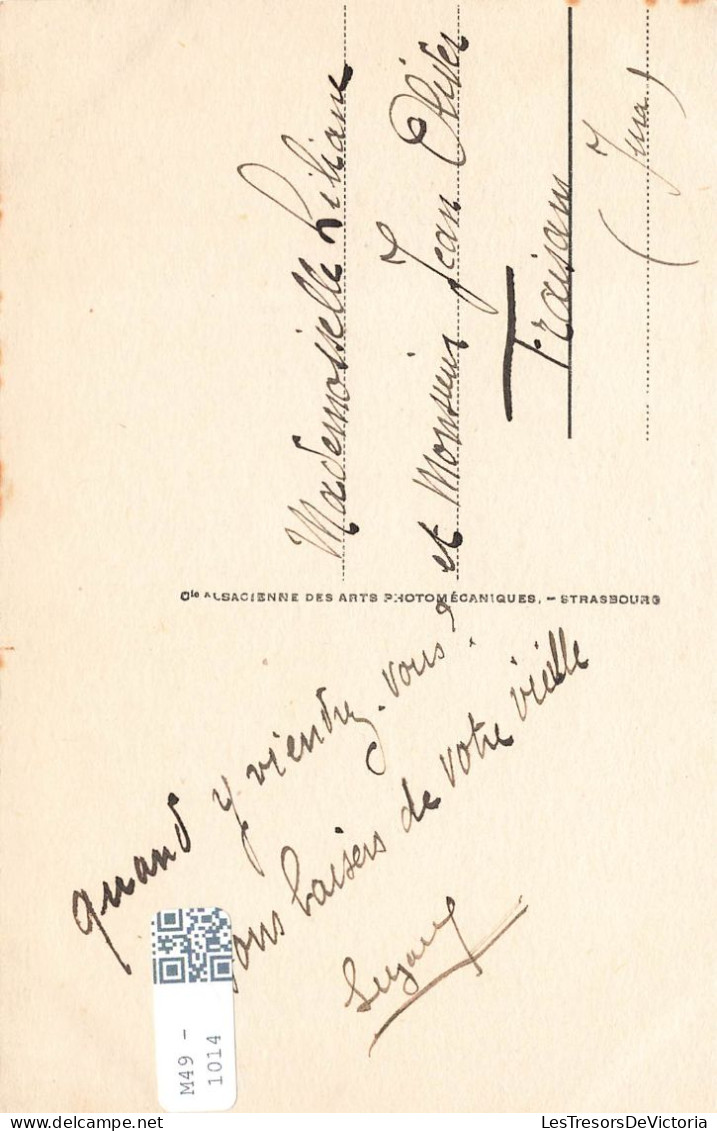 quand y viendrez-vous?
bons baisers de votre vieille
Suzanne
Cie ALSACIENNE DES ARTS PHOTOMÉCANIQUES. – STRASBOURG
Mademoiselle Liliane
et Monsieur Jean Olivier
Fraisans
(Jura)
M49 -
1014
LesTresorsDeVictoria
delcampe.net